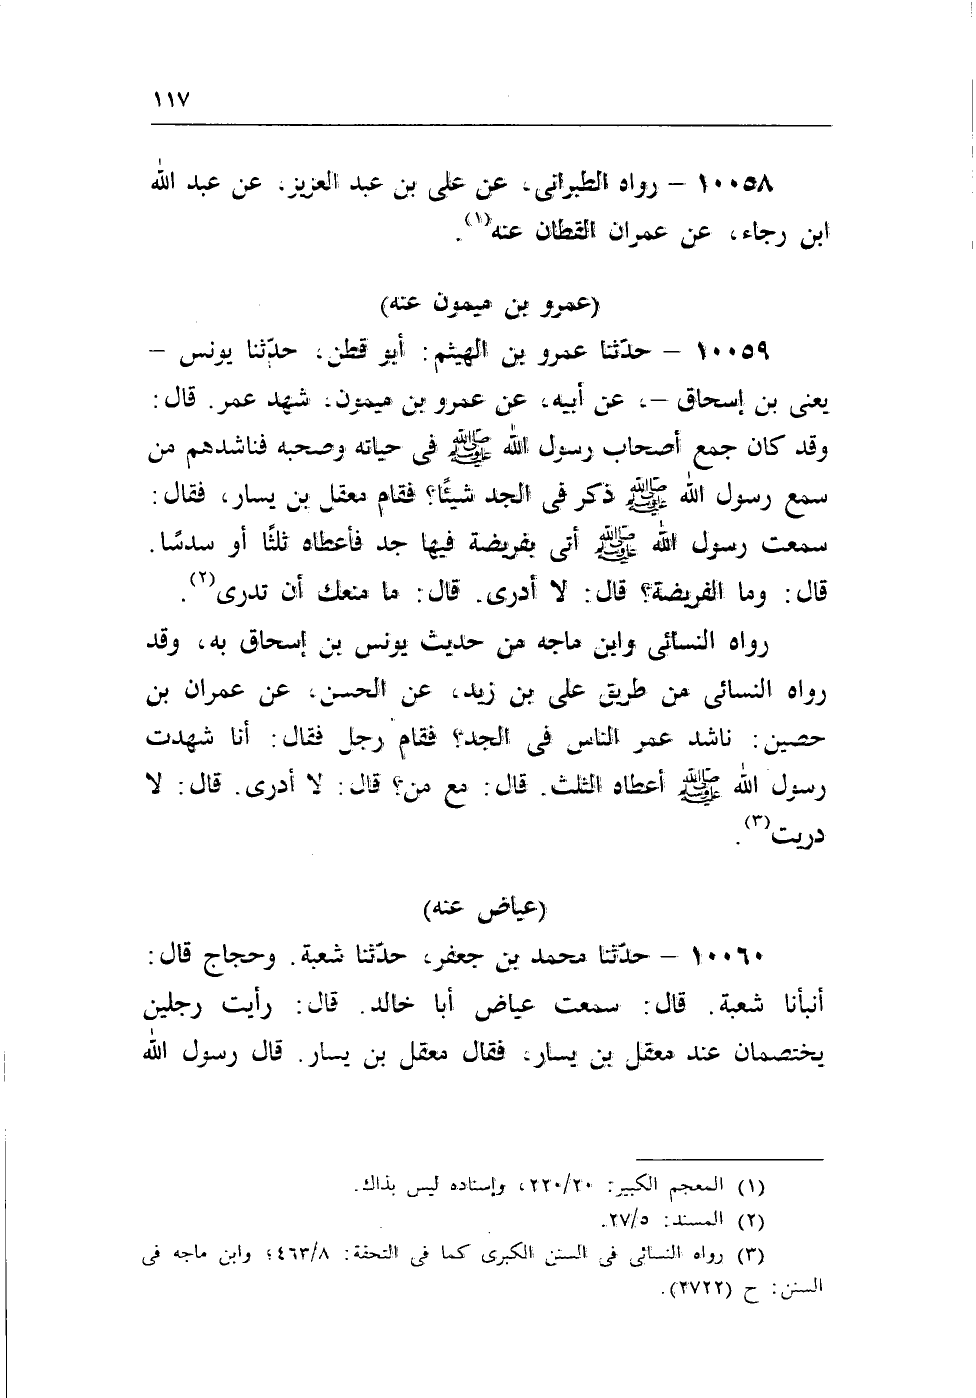 ١١٧
١٠٠٥٨ – رواه الطبرانى، عن على بن عبد العزيز، عن عبد الله
ابن رجاء، عن عمران القطان عنه(١).
(عمرو بن ميمون عنه)
١٠٠٥٩ – حدّثنا عمرو بن الهيثم: أبو قطن، حدّثنا يونس –
يعنى بن إسحاق –، عن أبيه، عن عمرو بن ميمون، شهد عمر. قال:
وقد كان جمع أصحاب رسول الله ﷺ فى حياته وصحبه فناشدهم من
سمع رسول الله ﷺ ذكر فى الجد شيئًا؟ فقام معقل بن يسار، فقال:
سمعت رسول الله ﷺ أتى بفريضة فيها جد فأعطاه ثلثًا أو سدسًا.
قال: وما الفريضة؟ قال: لا أدرى. قال: ما منعك أن تدرى(٢).
رواه النسائى وابن ماجه من حديث يونس بن إسحاق به، وقد
رواه النسائى من طريق على بن زيد، عن الحسن، عن عمران بن
حصين: ناشد عمر الناس فى الجد؟ فقام رجل فقال: أنا شهدت
رسول الله ﷺ أعطاه الثلث. قال: مع من؟ قال: لا أدرى. قال: لا
دريت(٣).
(عياض عنه)
١٠٠٦٠ – حدّثنا محمد بن جعفر، حدّثنا شعبة. وحجاج قال:
أنبأنا شعبة. قال: سمعت عياض أبا خالد. قال: رأيت رجلين
يختصمان عند معقل بن يسار، فقال معقل بن يسار. قال رسول الله
(١) المعجم الكبير: ٢٢٠/٢٠، وإسناده ليس بذاك.
(٢) المسند: ٢٧/٥.
(٣) رواه النسائى فى السنن الكبرى كما فى التحفة: ٤٦٣/٨؛ وابن ماجه فى
السنن: ح (٢٧٢٢).